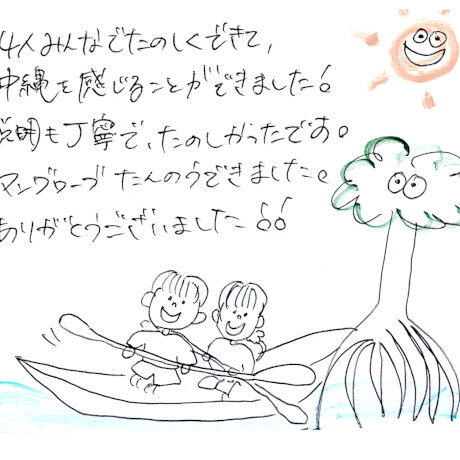 4人みんなでたのしくできて、
沖縄を感じることができました!
説明も丁寧で、たのしかったです。
マングローブ たんのうできました。
ありがとうございました!!